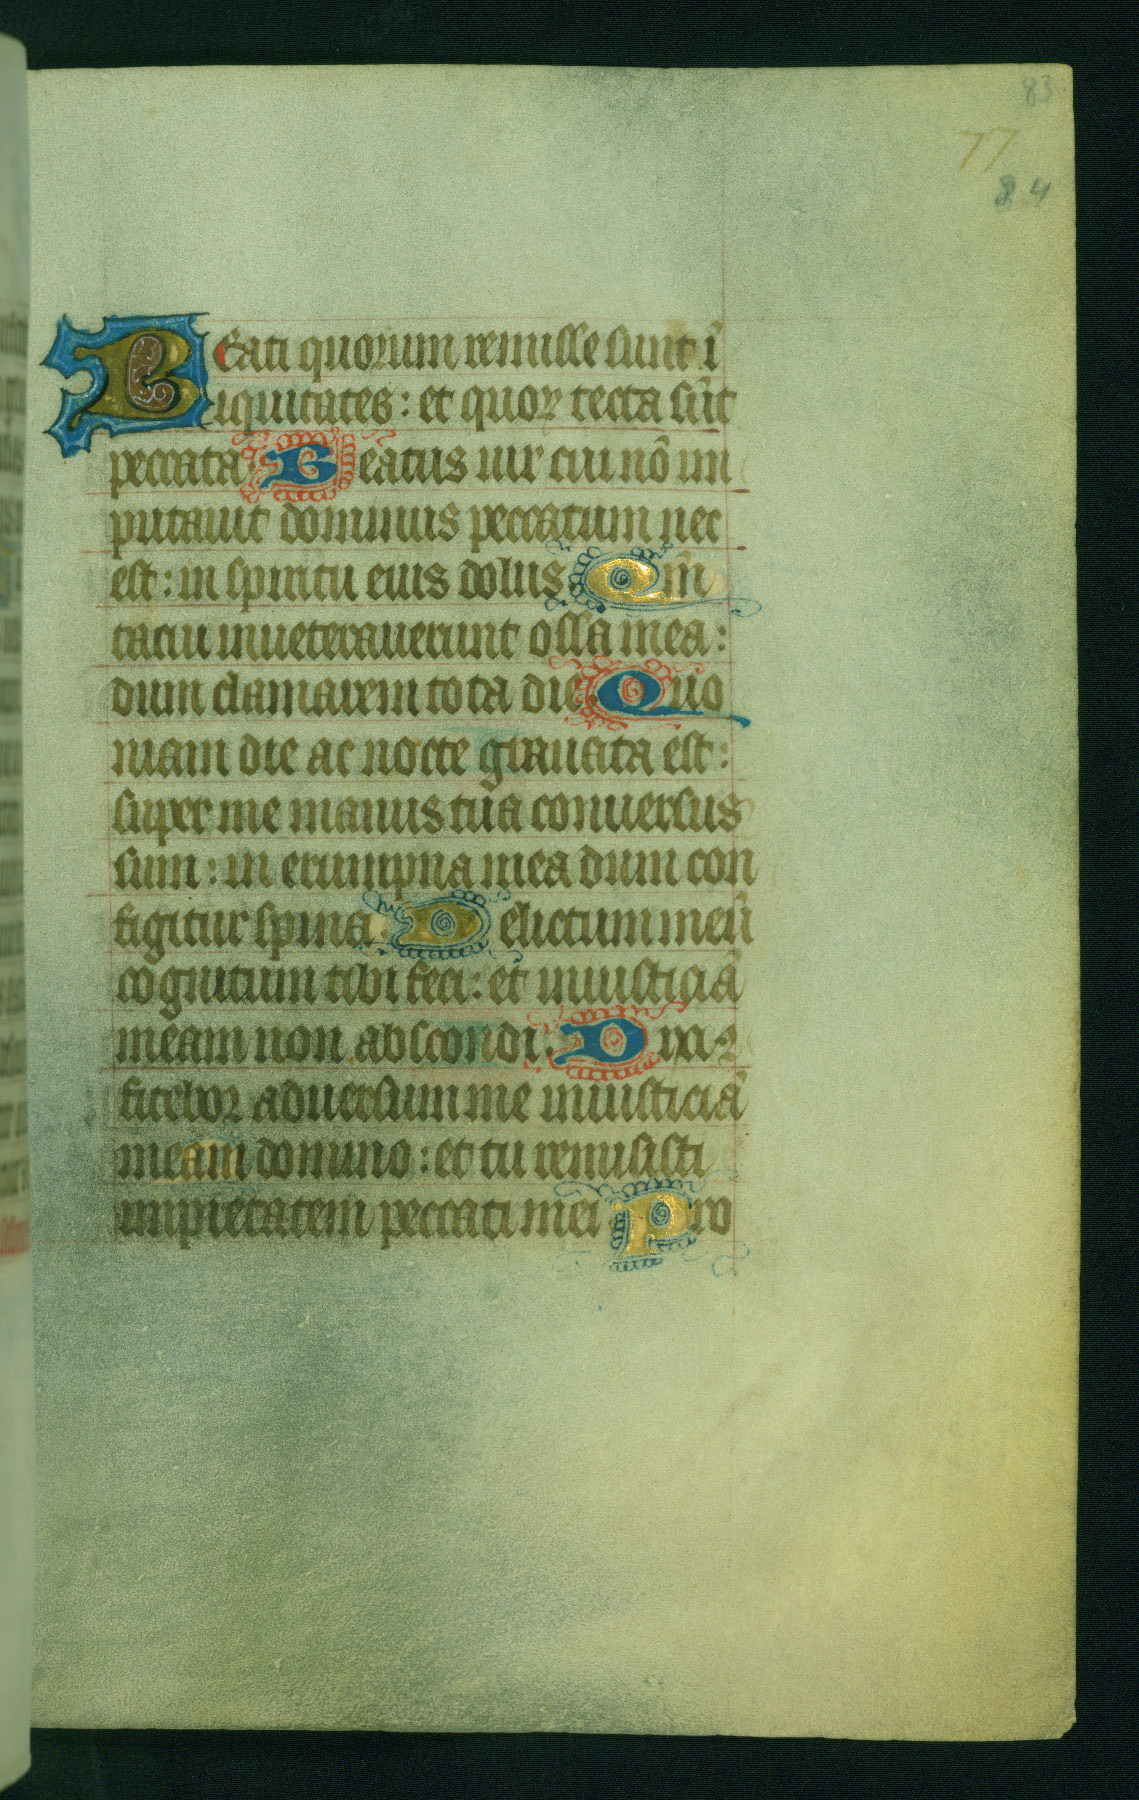 83
77
84
Beati quorum remisse sunt ī
iquitates: et quoꝝ tecta sūt
peccata Beatus uir cui nō im
putauit dominus peccatum nec
est: in spiritu eius dolus Qm̄
tacui inueterauerunt ossa mea:
dum clamarem tota die Quo
niam die ac nocte grauata est:
super me manus tua conuersus
sum: in erumpna mea dum con
figitur spina Delictum meū
cognitum tibi feci: et iniusticiā
meam non abscondi. Dixi ꝯ
fitebor aduersum me iniusticiā
meam domino: et tu remisisti
impietatem peccati mei Pro